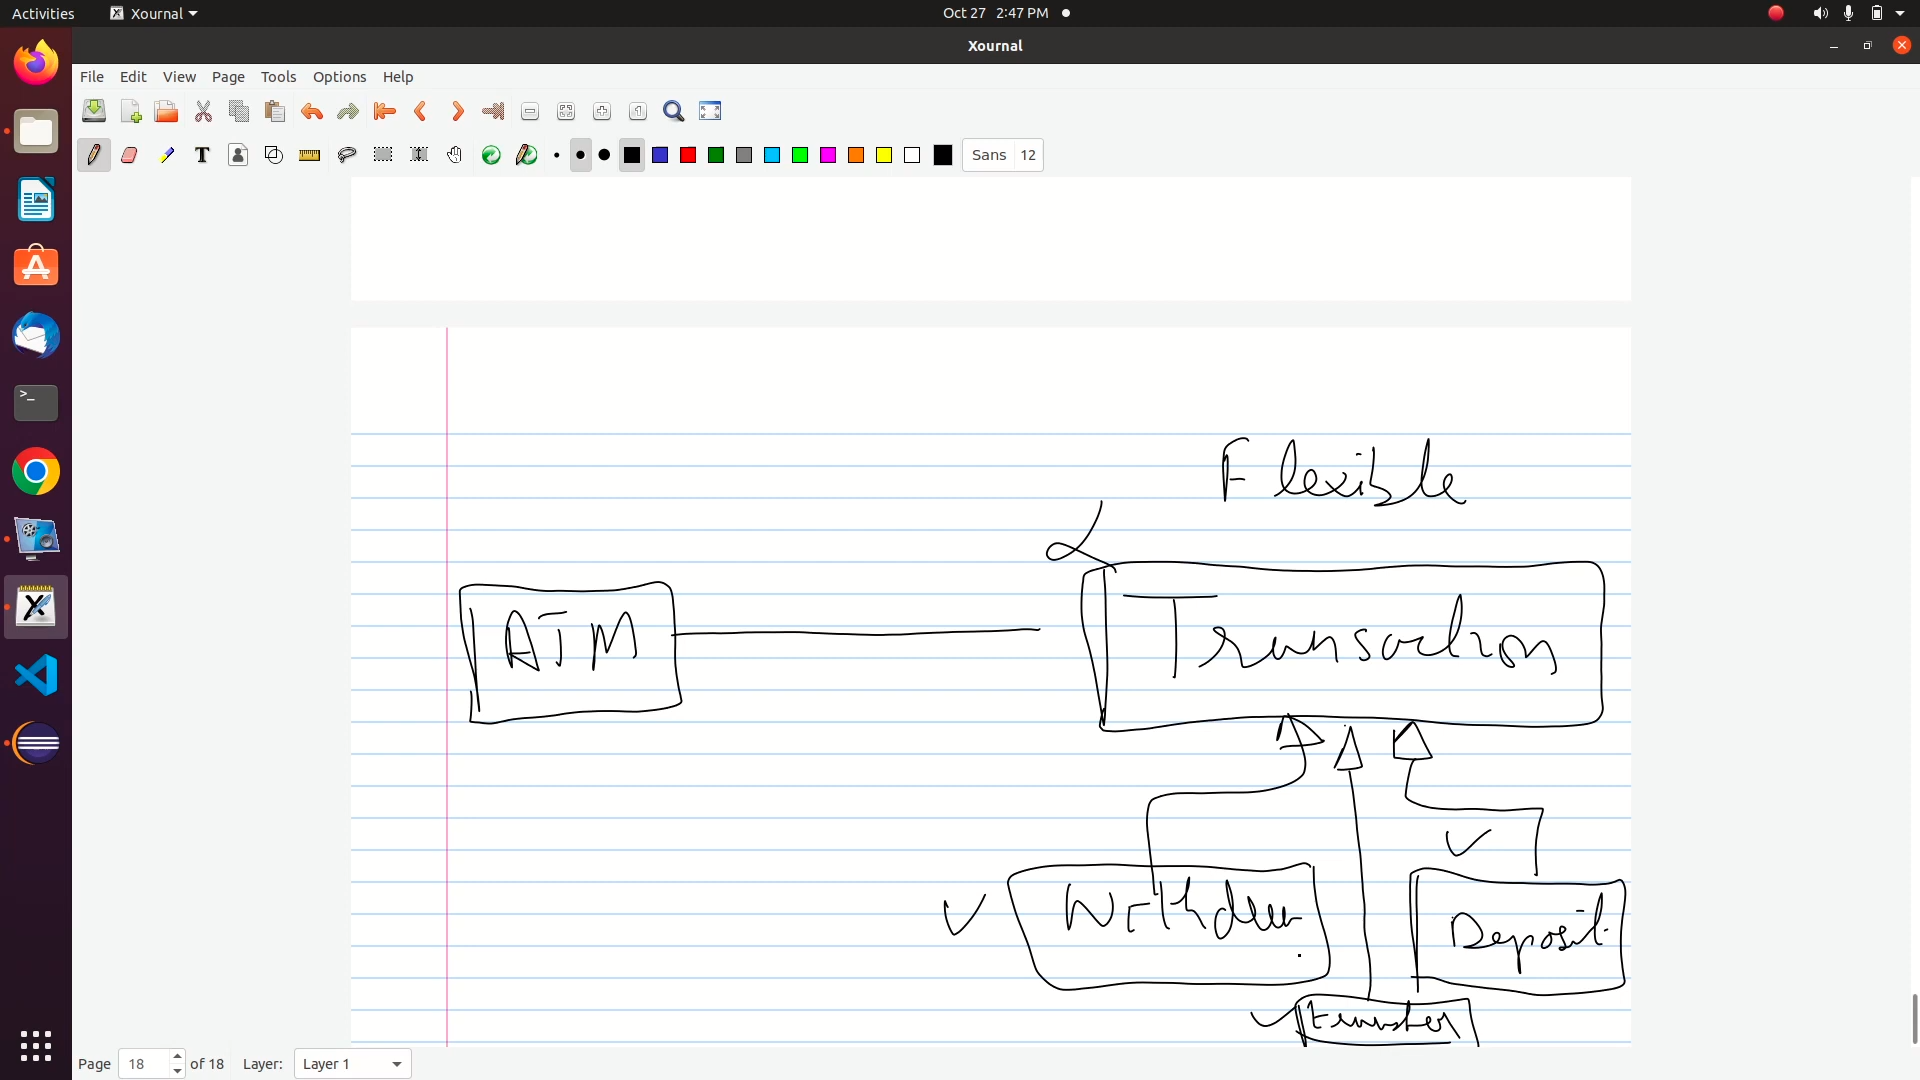 Activities Xournal Oct 27 2:47 PM
Xournal
File Edit View Page Tools Options Help
T Sans 12
Flexible
ATM Transaction
Withdraw Deposit
transfer
Page 18 of 18 Layer: Layer 1